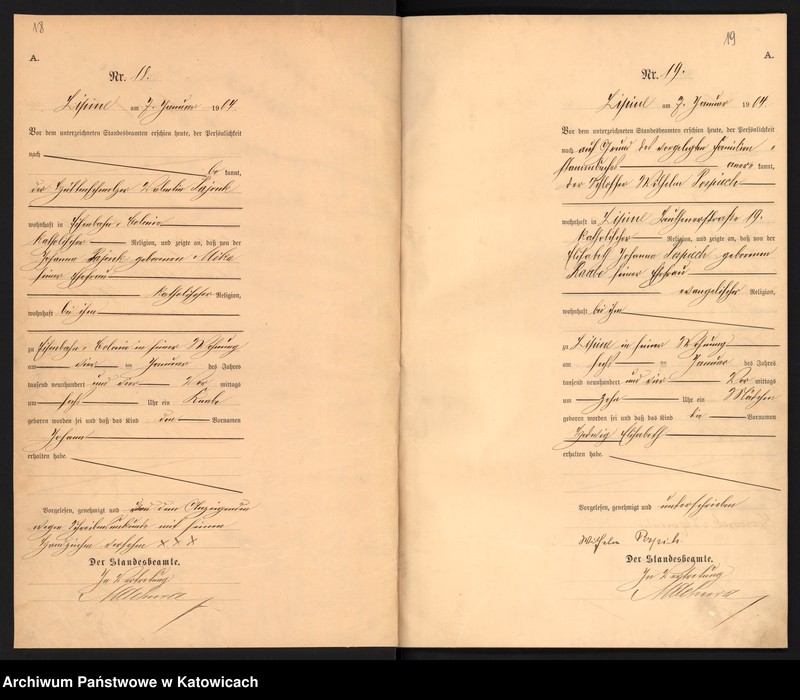 18
A.
Nr. 18.
Lipine am 7. Januar 1904.
Vor dem unterzeichneten Standesbeamten erschien heute, der Persönlichkeit
nach
be kannt,
der Zinkhüttenarbeiter
wohnhaft in Colonie
katholischer Religion, und zeigte an, daß von der
Johanna geborenen
seiner Ehefrau
katholischer Religion,
wohnhaft bei ihm
zu Colonie in seiner Wohnung
am vier ten Januar des Jahres
tausend neunhundert und vier Vor mittags
um sechs Uhr ein Knabe
geboren worden sei und daß das Kind den Vornamen
Johann
erhalten habe.
Vorgelesen, genehmigt und von dem Anzeigenden
wegen Schreibensunkunde mit seinem
Handzeichen versehen XXX
Der Standesbeamte.
In Vertretung
19
A.
Nr. 19.
Lipine am 7. Januar 1904.
Vor dem unterzeichneten Standesbeamten erschien heute, der Persönlichkeit
nach auf Grund des vorgelegten Familien
stammbuches aner kannt,
der Schlosser Wilhelm
wohnhaft in Lipine 19.
katholischer Religion, und zeigte an, daß von der
Elisabeth Johanna geborenen
Raabe seiner Ehefrau
evangelischer Religion,
wohnhaft bei ihm
zu Lipine in seiner Wohnung
am sechs ten Januar des Jahres
tausend neunhundert und vier Vor mittags
um zehn Uhr ein Mädchen
geboren worden sei und daß das Kind die Vornamen
Hedwig Elisabeth
erhalten habe.
Vorgelesen, genehmigt und unterschrieben
Wilhelm
Der Standesbeamte.
In Vertretung
Archiwum Państwowe w Katowicach